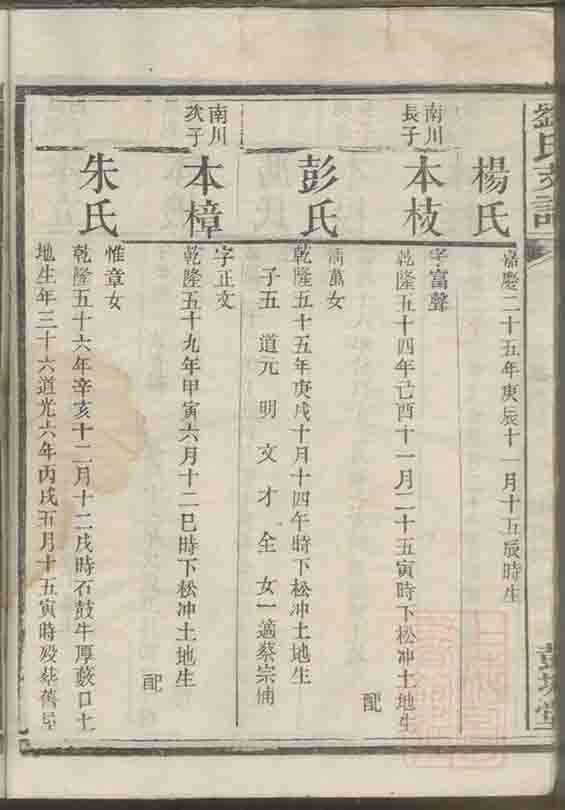 楊氏
嘉慶二十五年庚辰十一月十五辰時生
南川長子
本枝
字富聲
乾隆五十四年己酉十一月二十五寅時下松冲土地生
配
彭氏
萬女
乾隆五十五年庚戌十月十四午時下松冲土地生
子五 道元 明 文 才 全 女一適蔡宗
南川次子
本樟
字正文
乾隆五十九年甲寅六月十二巳時下松冲土地生
配
朱氏
惟章女
乾隆五十六年辛亥十二月十二戌時石鼓牛厚藪口土
地生年三十六道光六年丙戌五月十五寅時歿葬舊屋